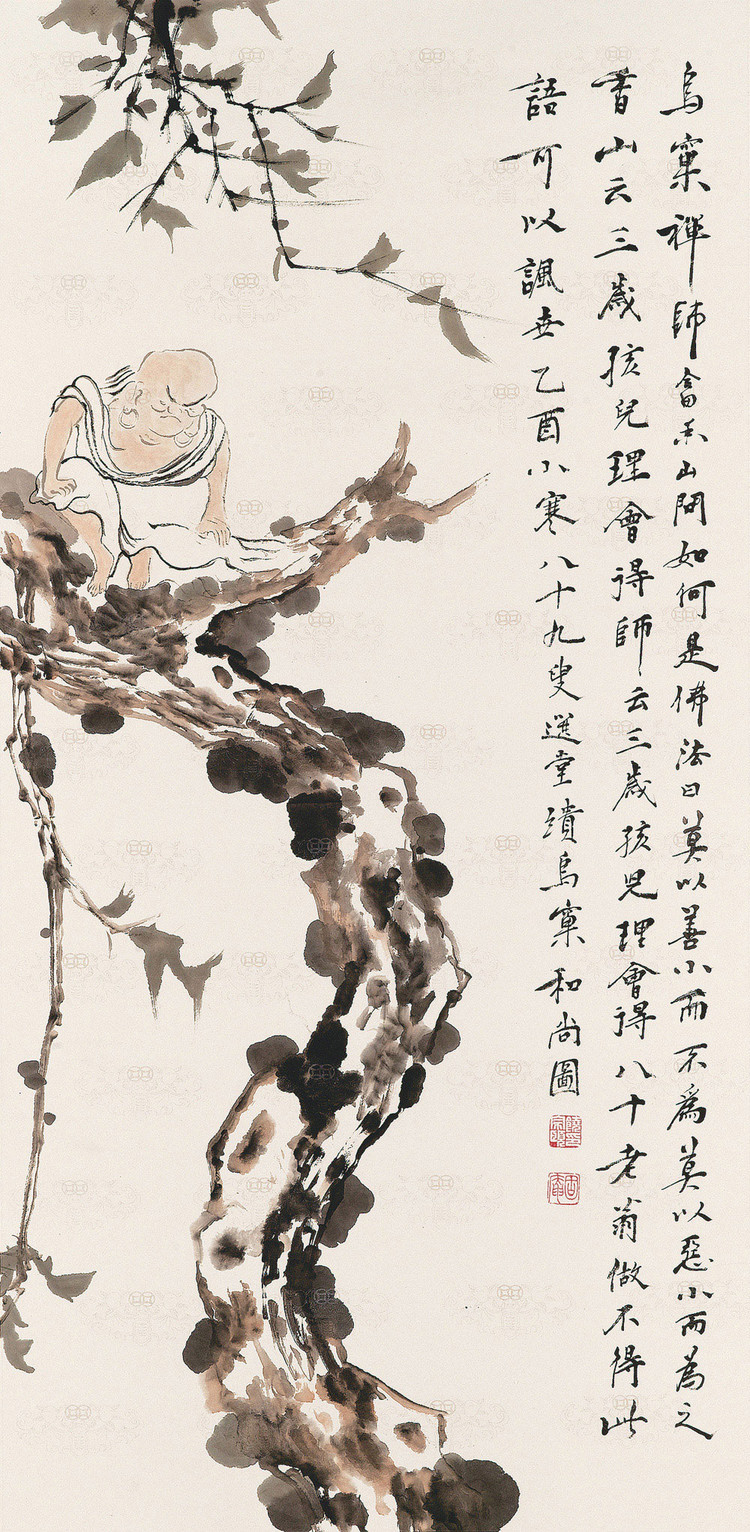 烏窠禪師畣香山問如何是佛法曰莫以善小而不為莫以惡小而為之
香山云三歲孩兒理會得師云三歲孩兒理會得八十老翁做不得此
語可以諷世乙酉小寒八十九叟選堂繢烏窠和尚圖